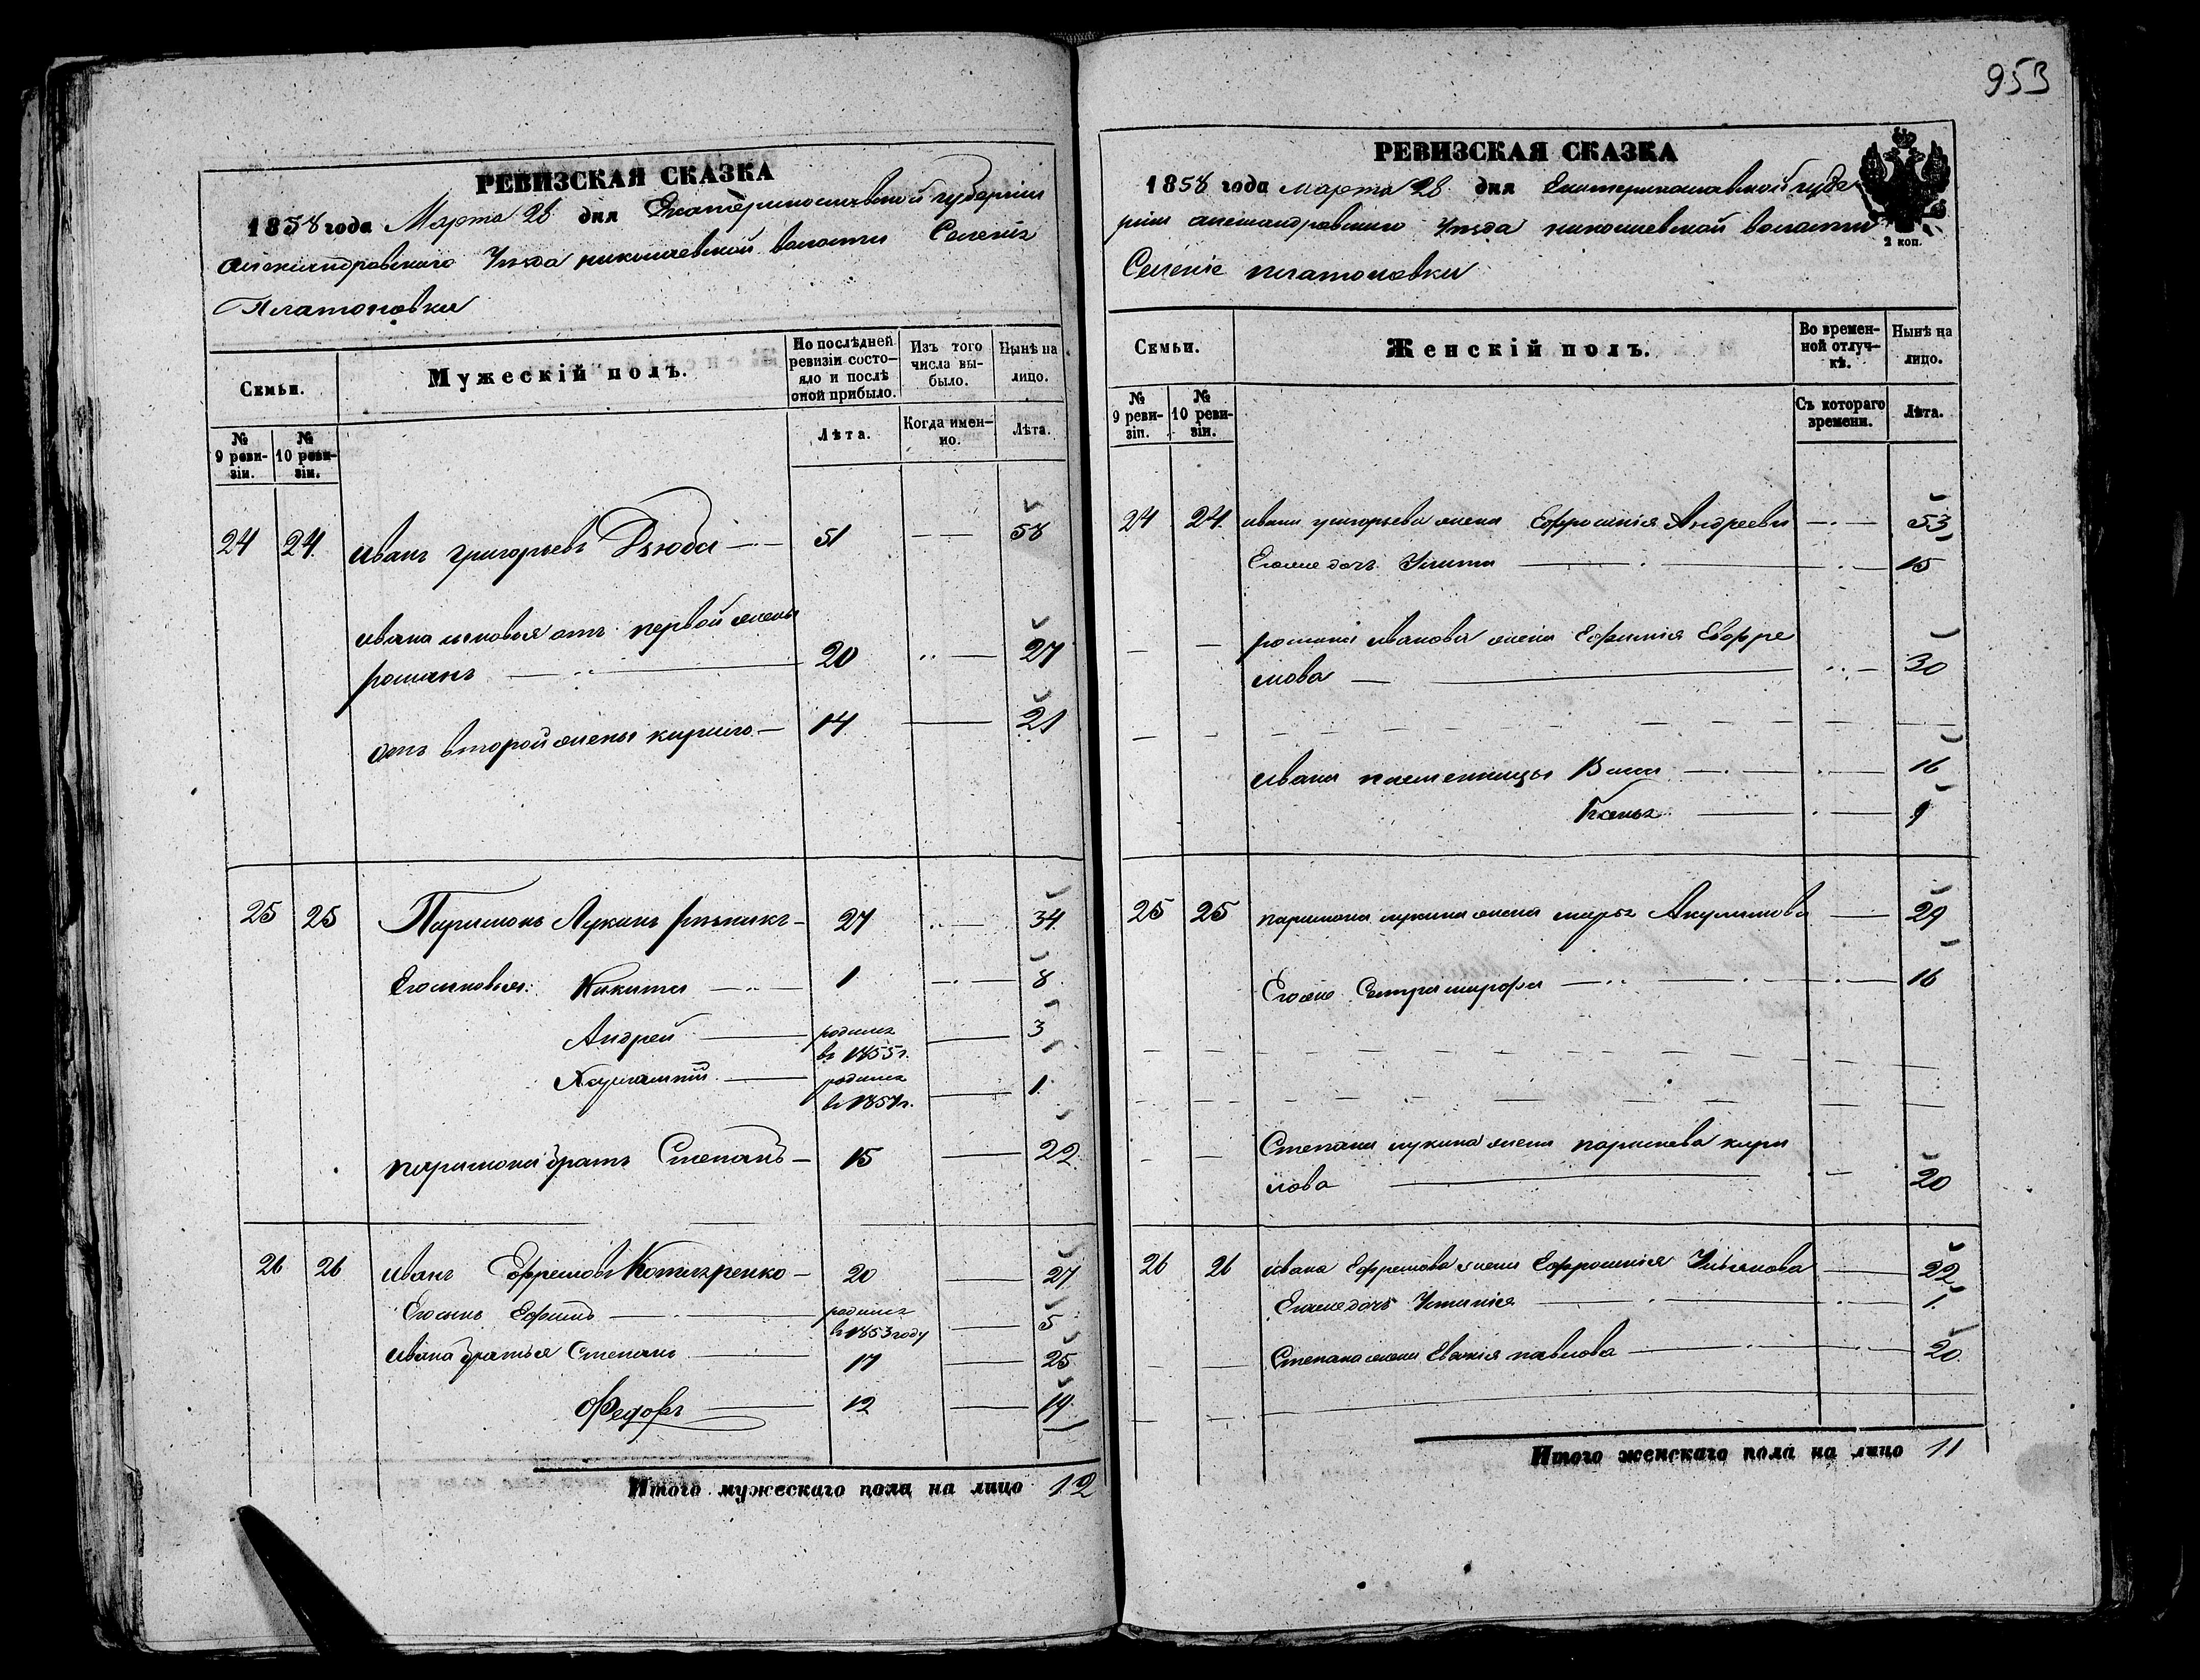 953
РЕВИЗСКАЯ СКАЗКА
1858 года Марта 28 дня Екатеринославской губерніи
александровскаго Уѣзда николаевской волости Селенія
Платоновки
Семьи.
Мужескій полъ.
По послѣдней ревизіи состояло и послѣ оной прибыло.
Изъ того числа выбыло.
Нынѣ на лицо.
№ 9 ревизіи.
№ 10 ревизіи.
Лѣта.
Когда именно.
Лѣта.
24 24. иванъ григорьевъ Дзюба 51 58
ивана сыновья отъ первой жены
романъ 20 27
отъ второй жены кирило 14 21
25 25 Паримонъ Лукинъ 27 34.
Его сыновья: Никита 1 8
Андрей родился
въ 1855 г. 3
родился
въ 1857 г. 1.
паримона братъ Степанъ 15 22
26 26 иванъ Ефремовъ 20 27
Его сынъ Ефимъ родился
въ 1853 году 5
ивана братья Степанъ 17 25
Федоръ 12 19.
Итого мужескаго пола на лицо 12
РЕВИЗСКАЯ СКАЗКА
1858 года марта 28 дня Екатеринославской губер
ніи александровскаго Уѣзда николаевской волости
2 коп.
Селеніе платоновки
Семьи.
Женскій полъ.
Во временной отлучкѣ.
Нынѣ на лицо.
№ 9 ревизіи.
№ 10 ревизіи.
Съ котораго времени.
Лѣта.
24 24. ивана григорьева жена Ефросинія Андреева 53
Егоже дочь Улита 15
романа иванова жена Ефимія Ефре
мова 30
ивана племенницы 16
9
25 25 паримона лукина жена Акулинова 29
Егоже Сестра 16
Степана лукина жена кири
лова 20
26 26 ивана Ефремова жена Ефросинія Ульянова 22
Егоже дочь Устинія 1.
Степана жена павлова 20.
Итого женскаго пола на лицо 11